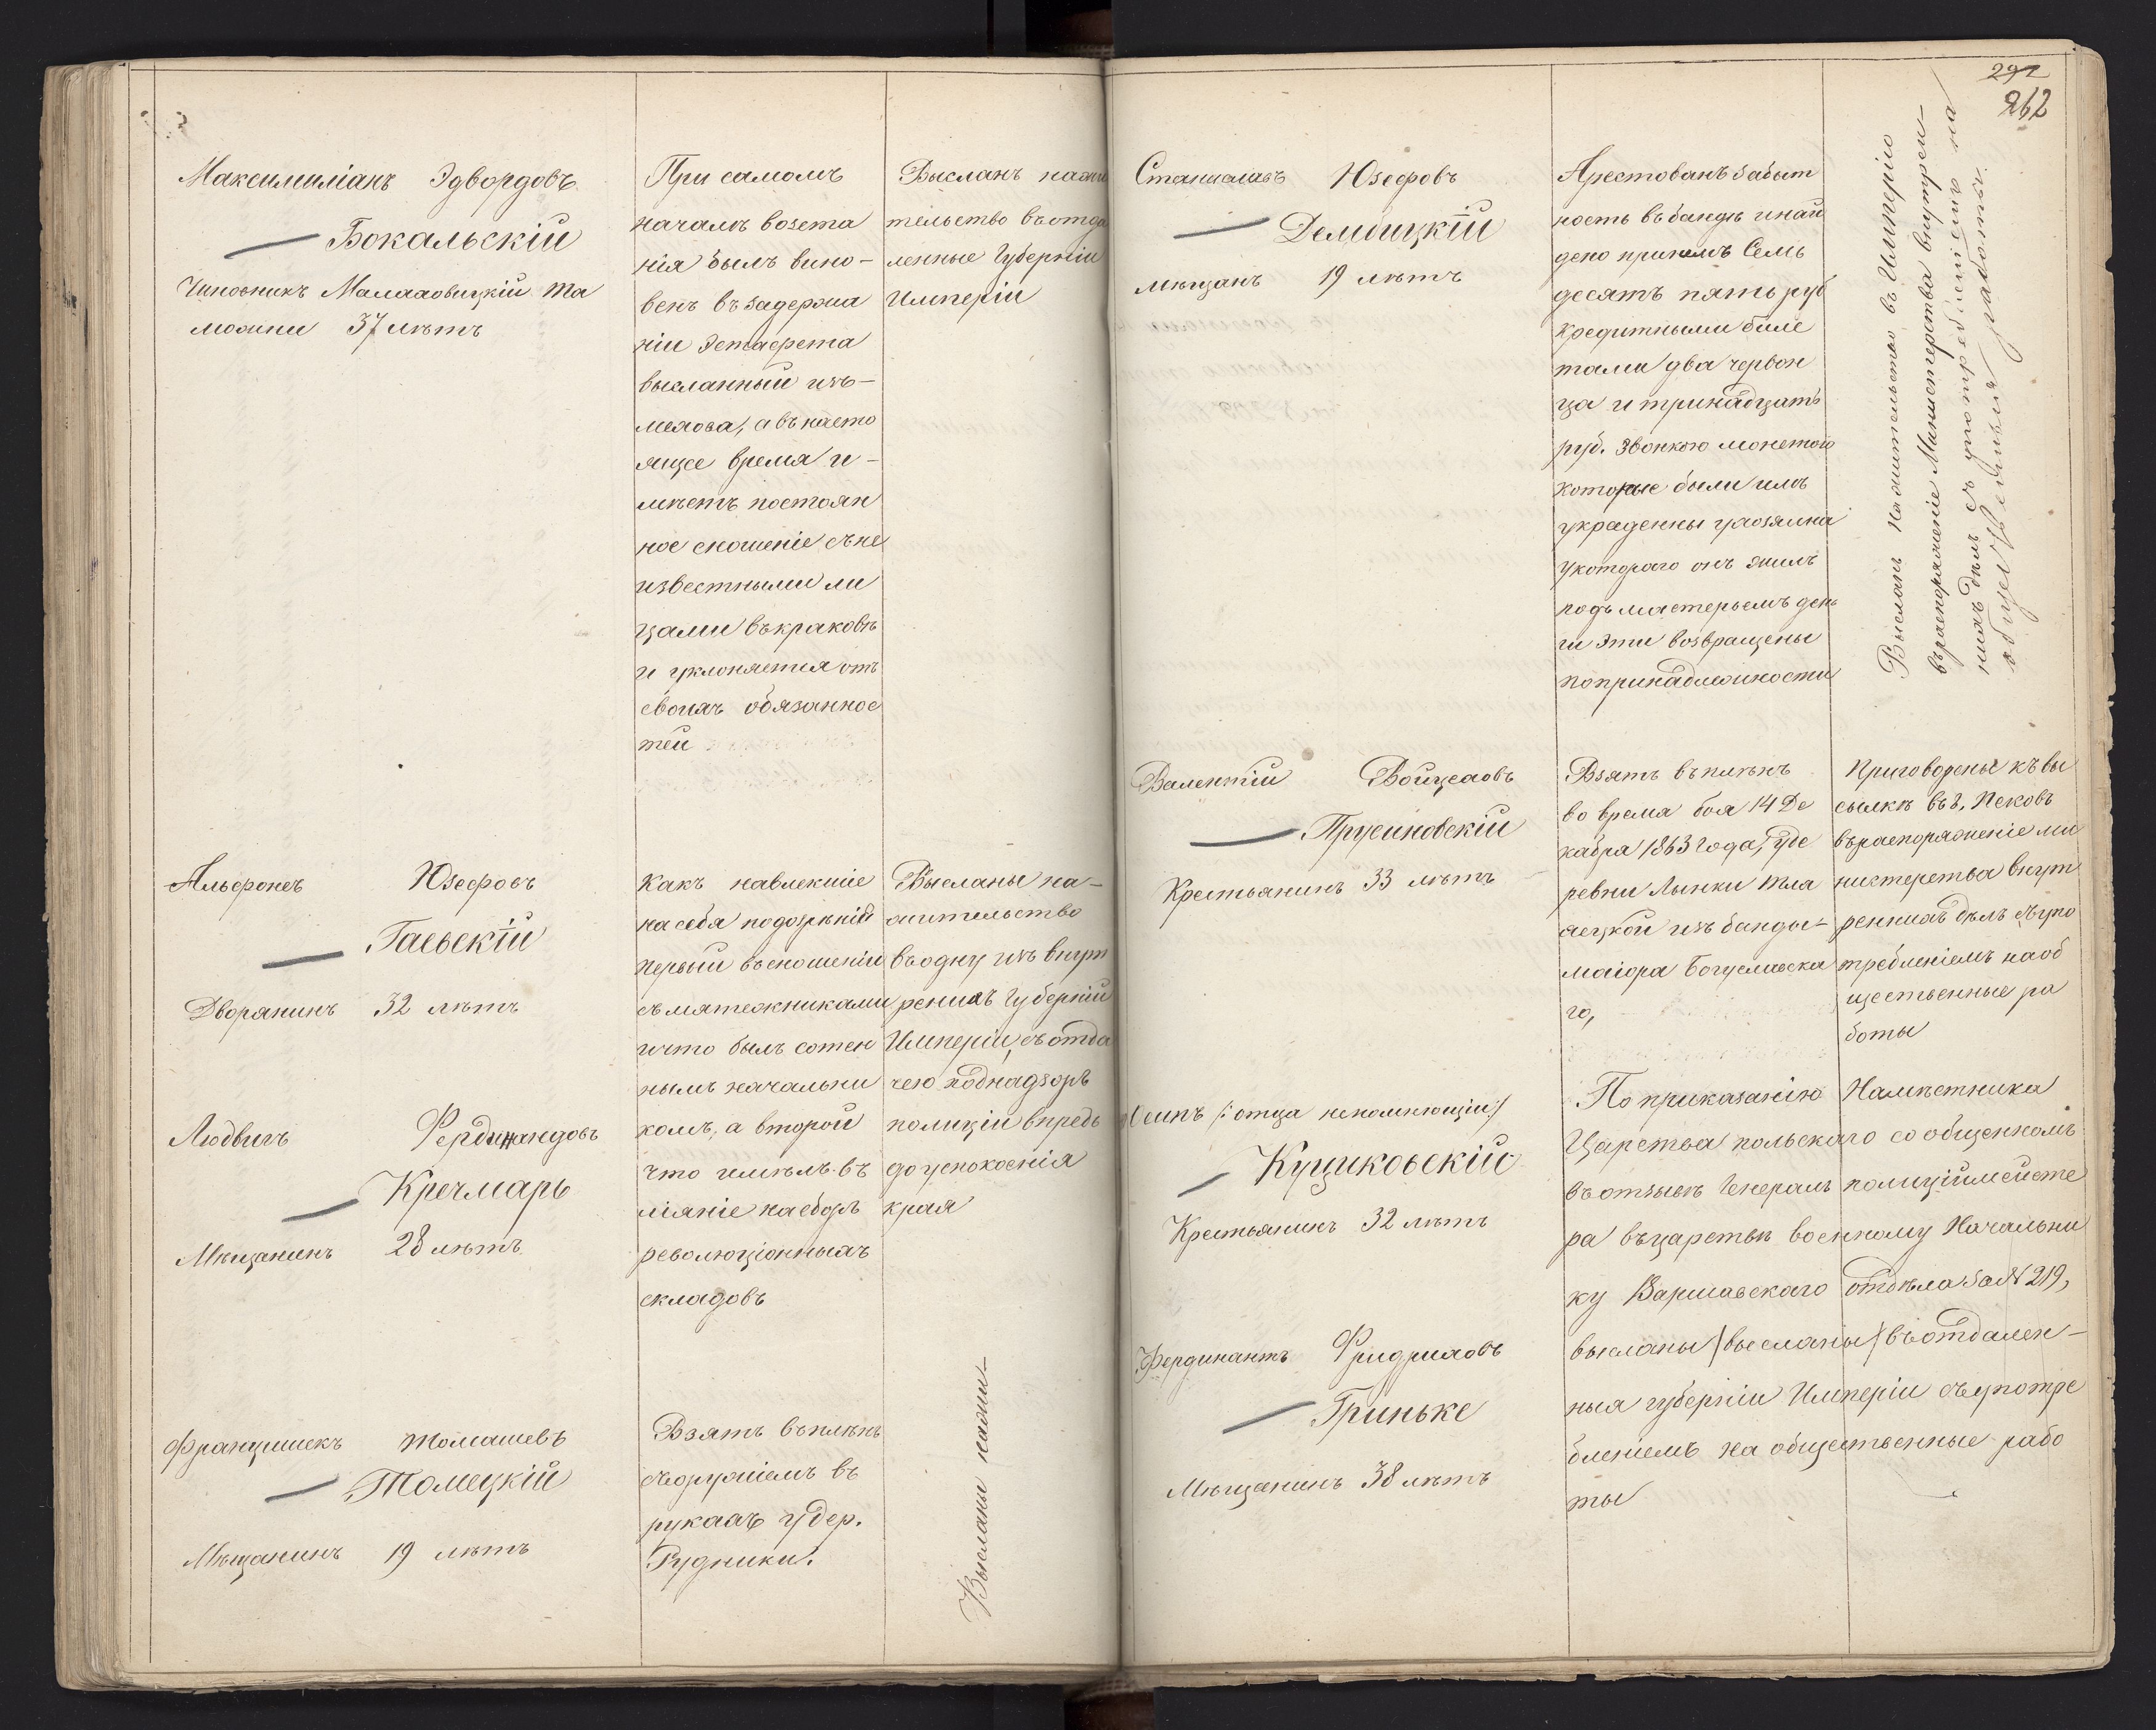 Максимиліанъ Эдвордовъ
Бокальскій
Чиновникъ Малаховицкій та
можни 37 лѣтъ
При самомъ
началѣ возста
нія былъ вино-
венъ въ задержа
ніи Эстафета
высланный изъ-
мехова, а въ насто
ящее время и-
мѣетъ постоян
ное сношеніе съ не
известными ли
цами въ краковѣ
и уклоняется отъ
своихъ обязаннос
тей
Высланъ на жи
тельство въ отда
ленные Губерніи
Имперіи
Альфонсъ Юзефовъ
Гаевскій
Дворянинъ 32 лѣтъ
Людвигъ Фердинандовъ
Кречмаръ
Мѣщанинъ 28 лѣтъ
Какъ навлекшіе
на себя подозрѣній
первый въ сношеніи
съ мятежниками
и что былъ сотен
нымъ начальни
комъ, а второй
что имѣлъ в
ліяніе на сборъ
революціонныхъ
складовъ
Высланы на-
жительство
въ одну изъ внут
реннихъ Губерній
Имперіи, съ отда
чею подъ надзоръ
полиціи впредь
до успокоенія
края
Францишекъ Томашевъ
Томецкій
Мѣщанинъ 19 лѣтъ
Взятъ въ плѣнъ
съ оружіемъ въ
рукахъ у дер.
Рудники.
Высланы на жи-
292
262
Станиславъ Юзефовъ
Дембицкій
мѣщанъ 19 лѣтъ
Арестованъ за быт
ность въ бандѣ и най
дено при немъ Семь
десятъ пять руб
кредитными биле
тами два червон
ца и тринадцать
руб. звонкою монетою
которые были имъ
украденны у хозяина
у котораго онъ жилъ
подъ мастерьемъ день
ги эти возвращены
по принадлежности
Высланъ на жительство въ Имперію
въ распоряженіе Министерства внутрен-
нихъ дѣлъ съ употребленіемъ на
общественныя работы.
Валентій Войцеховъ
Прусиновскій
Крестьянинъ 33 лѣтъ
Взятъ въ плѣнъ
во время боя 14 Де
кабря 1863 года, у де
ревни Лынки
изъ банды-
маіора Богуславска
го,
Приговорены къ вы
сылкѣ въ г. Псковъ
въ распоряженіе ми
нистерства внут
реннихъ дѣлъ съ упо
требленіемъ на об
щественные ра
боты
Осипъ /: отца непомнющій :/
Куциковскій
Крестьянинъ 32 лѣтъ
Фердинантъ Фридриховъ
Гриньке
Мѣщанинъ 38 лѣтъ
По приказанію Намѣстника
Царства польскаго сообщенномъ
въ отзывѣ Генералъ полиціймейсте
ра въ царствѣ военному Начальни
ку Варшавскаго отдѣла за № 219,
высланы (высланы) въ отдален-
ныя губерніи Имперіи съ употре
бленіемъ на общественные рабо
ты